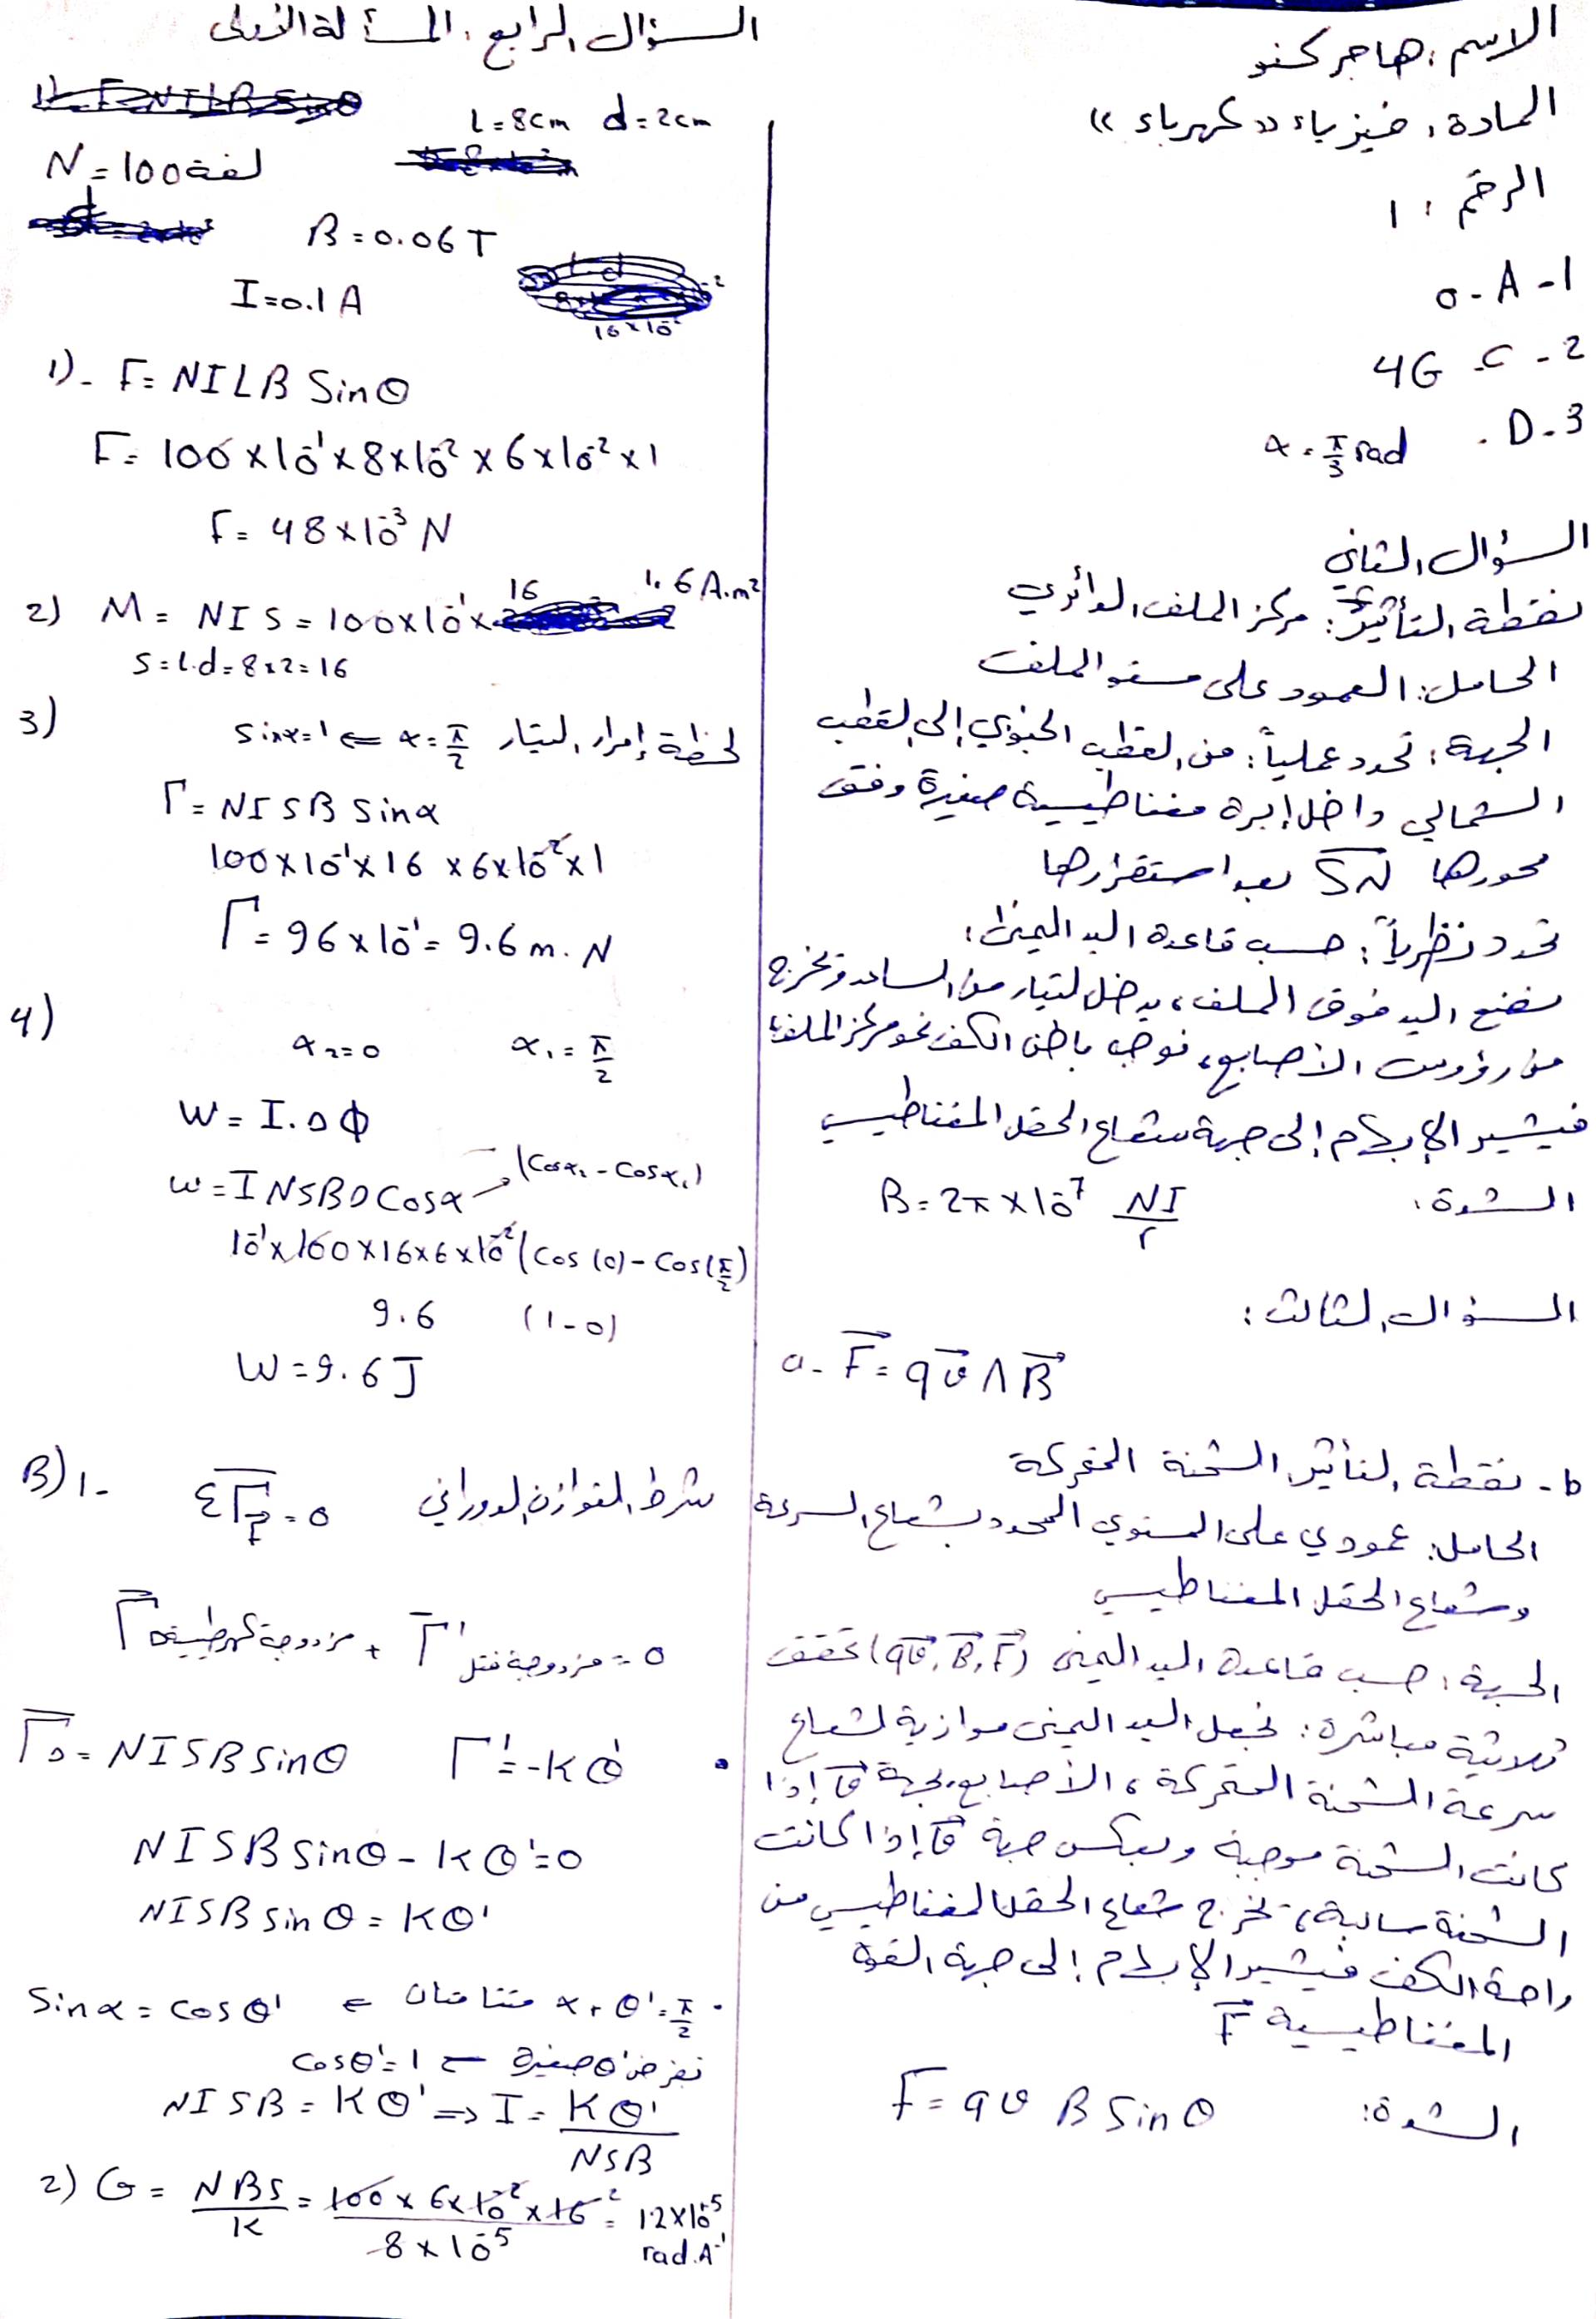 الاسم: هاجر كنو
المادة: فيزياء «كهرباء»
الرقم: 1
1- A - 0
2 - C - 4G
3 - D - α = π/3 rad
السؤال الثاني
نقطة التأثير: مركز الملف الدائري
الحامل: العمود على مستو الملف
الجهة: تحدد عملياً: من القطب الجنوبي إلى القطب
الشمالي داخل إبرة مغناطيسية صغيرة وفق
محورها SN بعد استقرارها
تحدد نظرياً: حسب قاعدة اليد اليمنى:
نضع اليد فوق الملف، يدخل التيار من الساعد ويخرج
من رؤوس الأصابع، نوجه باطن الكف نحو مركز الملف،
فيشير الإبهام إلى جهة شعاع الحقل المغناطيسي
الشدة: B = 2π × 10⁻⁷ NI/r
السؤال الثالث:
a - F⃗ = qv⃗ Λ B⃗
b - نقطة التأثير الشحنة المتحركة
الحامل: عمودي على المستوي المحدد بشعاع السرعة
وشعاع الحقل المغناطيسي
الجهة: حسب قاعدة اليد اليمنى (qv⃗, B⃗, F⃗) تحقق
ثلاثية مباشرة: نجعل اليد اليمنى موازية لشعاع
سرعة الشحنة المتحركة، الأصابع بجهة v⃗ إذا
كانت الشحنة موجبة وبعكس جهة v⃗ إذا كانت
الشحنة سالبة، يخرج شعاع الحقل المغناطيسي من
راحة الكف فيشير الإبهام إلى جهة القوة
المغناطيسية F⃗
الشدة: F = qv B Sin θ
السؤال الرابع: المسألة الأولى
L = 8cm d = 2cm
N = 100 لفة
B = 0.06 T
I = 0.1 A
1) - F = NILB Sin θ
F = 100 × 10⁻¹ × 8 × 10⁻² × 6 × 10⁻² × 1
F = 48 × 10⁻³ N
2) M = NIS = 100 × 10⁻¹ × 16 1.6 A.m²
S = L.d = 8 × 2 = 16
3) لحظة إمرار التيار α = π/2 ⇐ Sin α = 1
Γ = NISB Sin α
100 × 10⁻¹ × 16 × 6 × 10⁻² × 1
Γ = 96 × 10⁻¹ = 9.6 m.N
4) α₂ = 0 α₁ = π/2
W = I.Δϕ
W = INSBΔCosα → (Cosα₂ - Cosα₁)
10⁻¹ × 100 × 16 × 6 × 10⁻² (Cos(0) - Cos(π/2)
9.6 (1-0)
W = 9.6 J
B) 1 - ΣΓ = 0 شرط التوازن الدوراني
Γ مزدوجة كهرطيسية + Γ' مزدوجة فتل = 0
ΓΔ = NISB Sin θ Γ' = -Kθ'
NISB Sin θ - Kθ' = 0
NISB Sin θ = Kθ'
α + θ' = π/2 متتامتان ⇐ Sin α = cos θ'
نفرض θ' صغيرة ⇐ cos θ' = 1
NISB = Kθ' ⇒ I = Kθ'/NSB
2) G = NBS/K = 100 × 6 × 10⁻² × 16/8 × 10⁻⁵ = 12 × 10⁺⁵
rad.A⁻¹